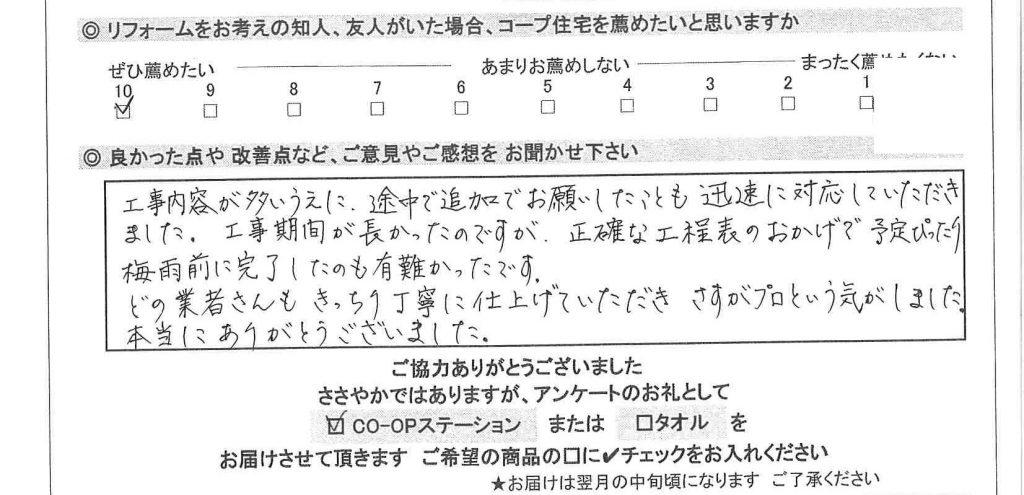 ◎ リフォームをお考えの知人、友人がいた場合、コープ住宅を薦めたいと思いますか
ぜひ薦めたい あまりお薦めしない まったく薦めたくない
10 9 8 7 6 5 4 3 2 1
☑ □ □ □ □ □ □ □ □ □
◎ 良かった点や 改善点など、ご意見やご感想を お聞かせ下さい
工事内容が多いうえに、途中で追加でお願いしたことも 迅速に対応していただき
ました。工事期間が長かったのですが、正確な工程表のおかげで 予定ぴったり
梅雨前に完了したのも有難かったです。
どの業者さんも きっちり丁寧に仕上げていただき さすがプロという気がしました。
本当にありがとうございました。
ご協力ありがとうございました
ささやかではありますが、アンケートのお礼として
☑ CO-OPステーション または □タオル を
お届けさせて頂きます ご希望の商品の□に✔チェックをお入れください
★お届けは翌月の中旬頃になります ご了承ください